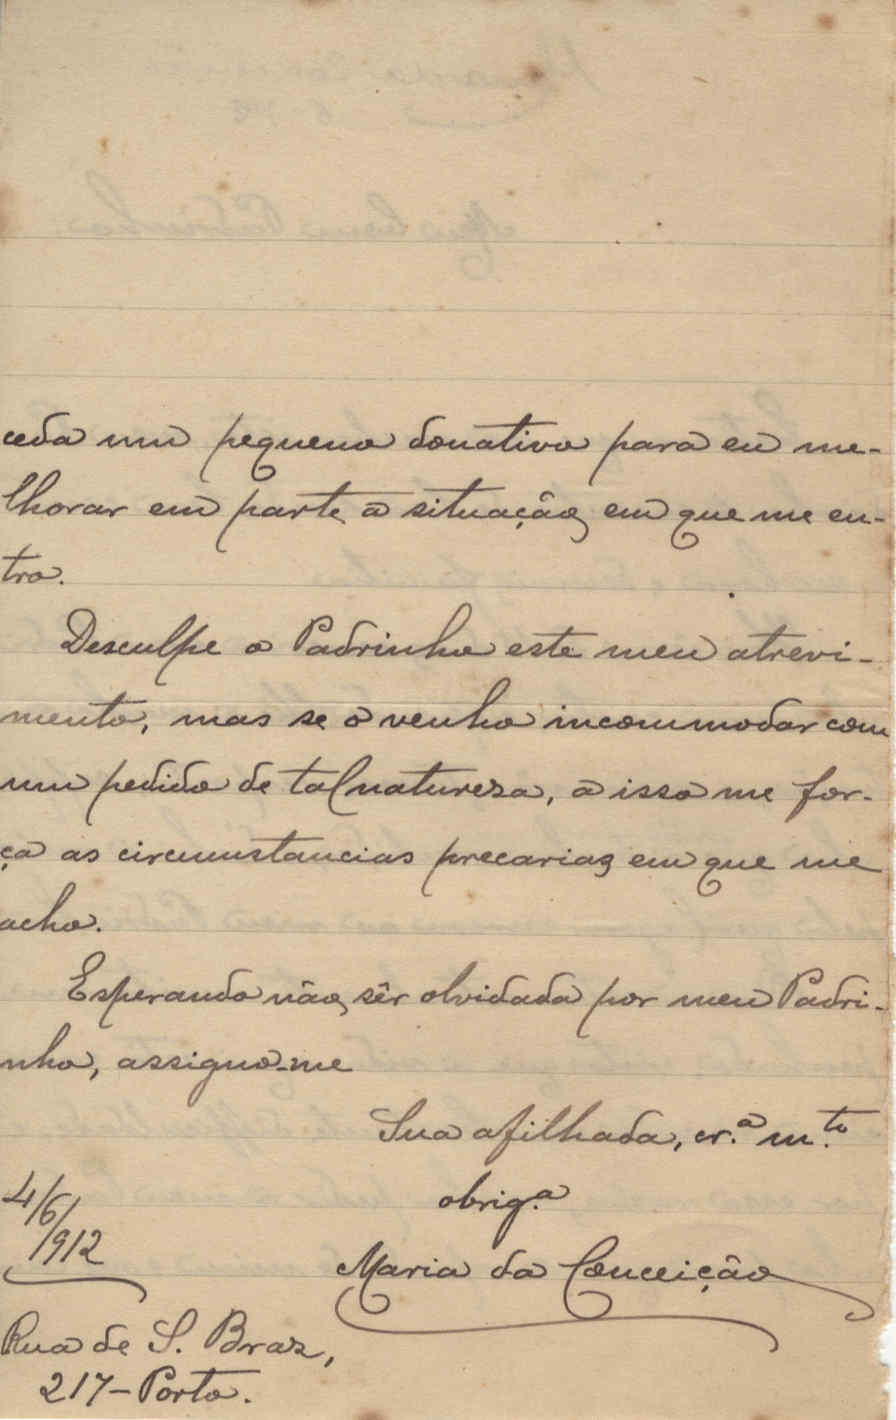 ceda um pequeno donativo para eu me-
lhorar em parte a situação em que me en-
tro.
Desculpe o Padrinho este meu atrevi-
mento, mas se o venho incommodar com
um pedido de tal naturesa, a isso me for-
ça as circumstancias precarias em que me
acho.
Esperando não sêr olvidada por meu Padri-
nho, assigno-me
Sua afilhada, cr.ª m.to
obrig.ª
4/6/912
Maria da Conceição
Rua de S. Braz,
217-Porto.